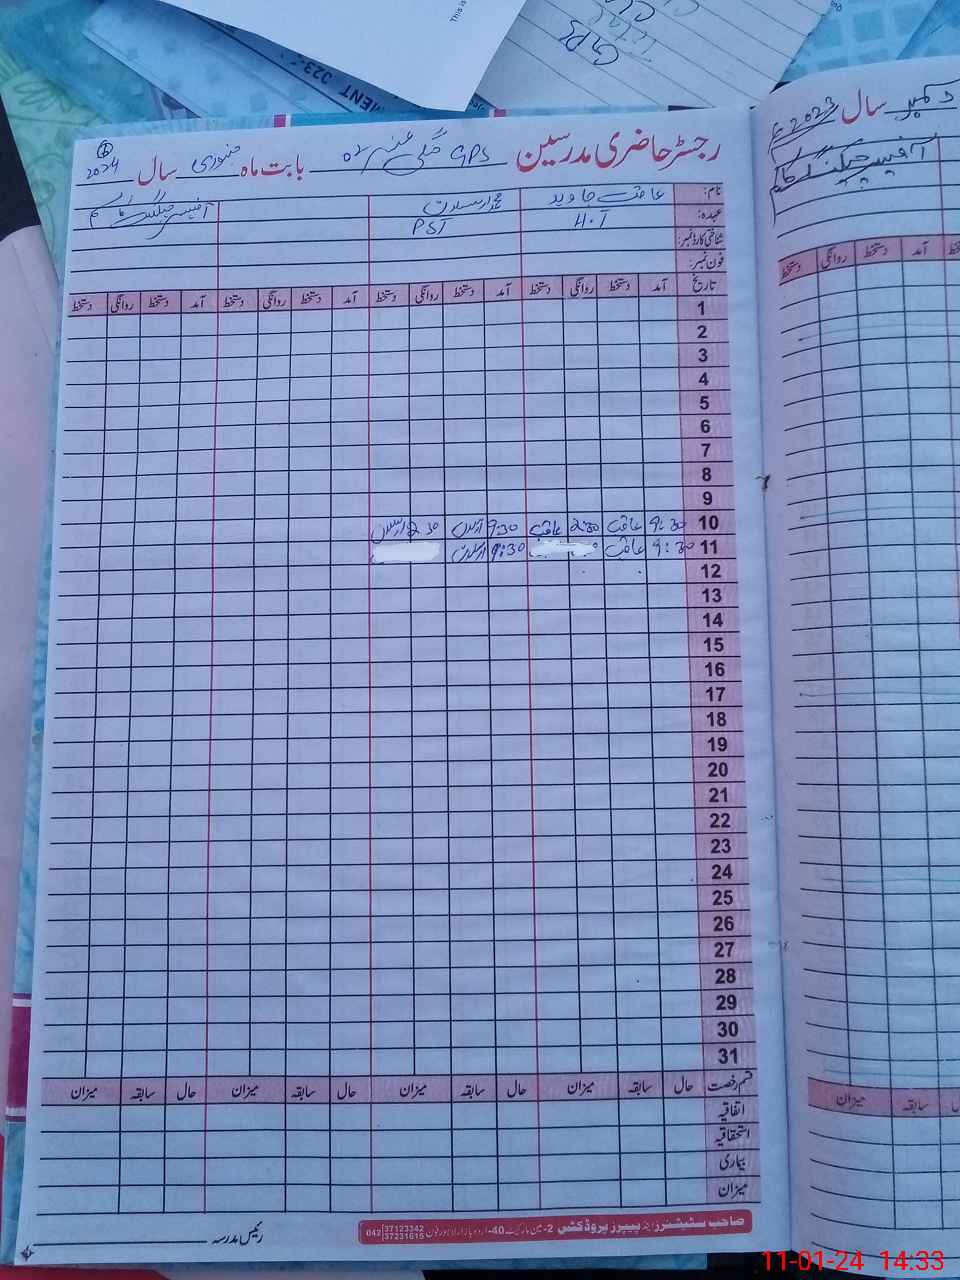 رجسٹر حاضری مدرسین GPS گلی 02 بابت ماہ جنوری سال 2024
نام: عاقب جاوید محمد ارسلان
عہدہ: H.T PST
شناختی کارڈ نمبر:
فون نمبر:
تاریخ آمد دستخط روانگی دستخط آمد دستخط روانگی دستخط آمد دستخط روانگی دستخط آمد دستخط روانگی دستخط
1
2
3
4
5
6
7
8
9
10 9:30 عاقب 2:30 عاقب 9:30 ارسلان 2:30 ارسلان
11 9:30 عاقب 9:30 ارسلان
12
13
14
15
16
17
18
19
20
21
22
23
24
25
26
27
28
29
30
31
قسم رخصت حال سابقہ میزان حال سابقہ میزان حال سابقہ میزان حال سابقہ میزان
اتفاقیہ
استحقاقیہ
بیماری
میزان
صاحب سٹیشنرز اینڈ پیپرز پروڈکٹس 2-مین مارکیٹ 40-اردو بازار لاہور فون 042 37123342 37231615
رئیس مدرسہ
دسمبر سال 2023
آمد روانگی دستخط
سابقہ میزان
GPS
This is
11-01-24 14:33